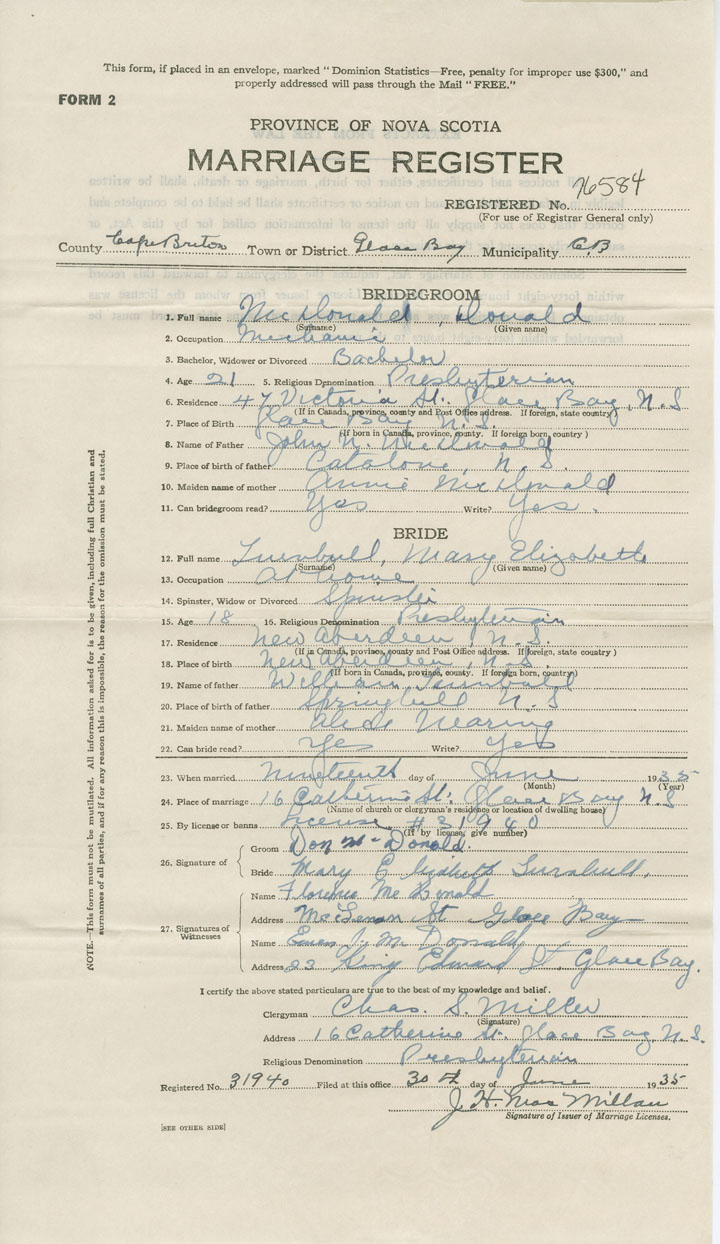 This form, if placed in an envelope, marked "Dominion Statistics—Free, penalty for improper use $300," and
properly addressed will pass through the Mail "FREE."
FORM 2
PROVINCE OF NOVA SCOTIA
MARRIAGE REGISTER
REGISTERED No. 76584
(For use of Registrar General only)
County Cape Breton Town or District Glace Bay Municipality C.B
BRIDEGROOM
1. Full name McDonald, Donald
(Surname) (Given name)
2. Occupation Mechanic
3. Bachelor, Widower or Divorced Bachelor
4. Age 21 5. Religious Denomination Presbyterian
6. Residence 47 Victoria St. Glace Bay, N.S
(If in Canada, province, county and Post Office address. If foreign, state country)
7. Place of Birth Glace Bay N.S.
(If born in Canada, province, county. If foreign born, country)
8. Name of Father John N. McDonald
9. Place of birth of father Catalone, N.S.
10. Maiden name of mother Annie McDonald
11. Can bridegroom read? Yes Write? Yes.
BRIDE
12. Full name Turnbull, Mary Elizabeth
(Surname) (Given name)
13. Occupation At Home
14. Spinster, Widow or Divorced Spinster
15. Age 18 16. Religious Denomination Presbyterian
17. Residence New Aberdeen, N.S.
(If in Canada, province, county and Post Office address. If foreign, state country)
18. Place of birth New Aberdeen, N.S.
(If born in Canada, province, county. If foreign born, country)
19. Name of father William Turnbull
20. Place of birth of father Springhill N.S
21. Maiden name of mother Nearing
22. Can bride read? Yes Write? Yes
23. When married Nineteenth day of June 1935
(Month) (Year)
24. Place of marriage 16 Catherine St. Glace Bay N.S
(Name of church or clergyman's residence or location of dwelling house)
25. By license or banns License #31940
(If by license, give number)
26. Signature of
Groom Don McDonald.
Bride Mary Elizabeth Turnbull.
27. Signatures of Witnesses
Name Florence McDonald
Address McLean St Glace Bay
Name J. McDonald
Address 23 King Edward St. Glace Bay.
I certify the above stated particulars are true to the best of my knowledge and belief.
Clergyman Chas. S. Miller
(Signature)
Address 16 Catherine St. Glace Bay N.S.
Religious Denomination Presbyterian
Registered No. 31940 Filed at this office 30th day of June 1935
J. H. MacMillan
Signature of Issuer of Marriage Licenses.
[SEE OTHER SIDE]
NOTE.—This form must not be mutilated. All information asked for is to be given, including full Christian and
surnames of all parties, and if for any reason this is impossible, the reason for the omission must be stated.